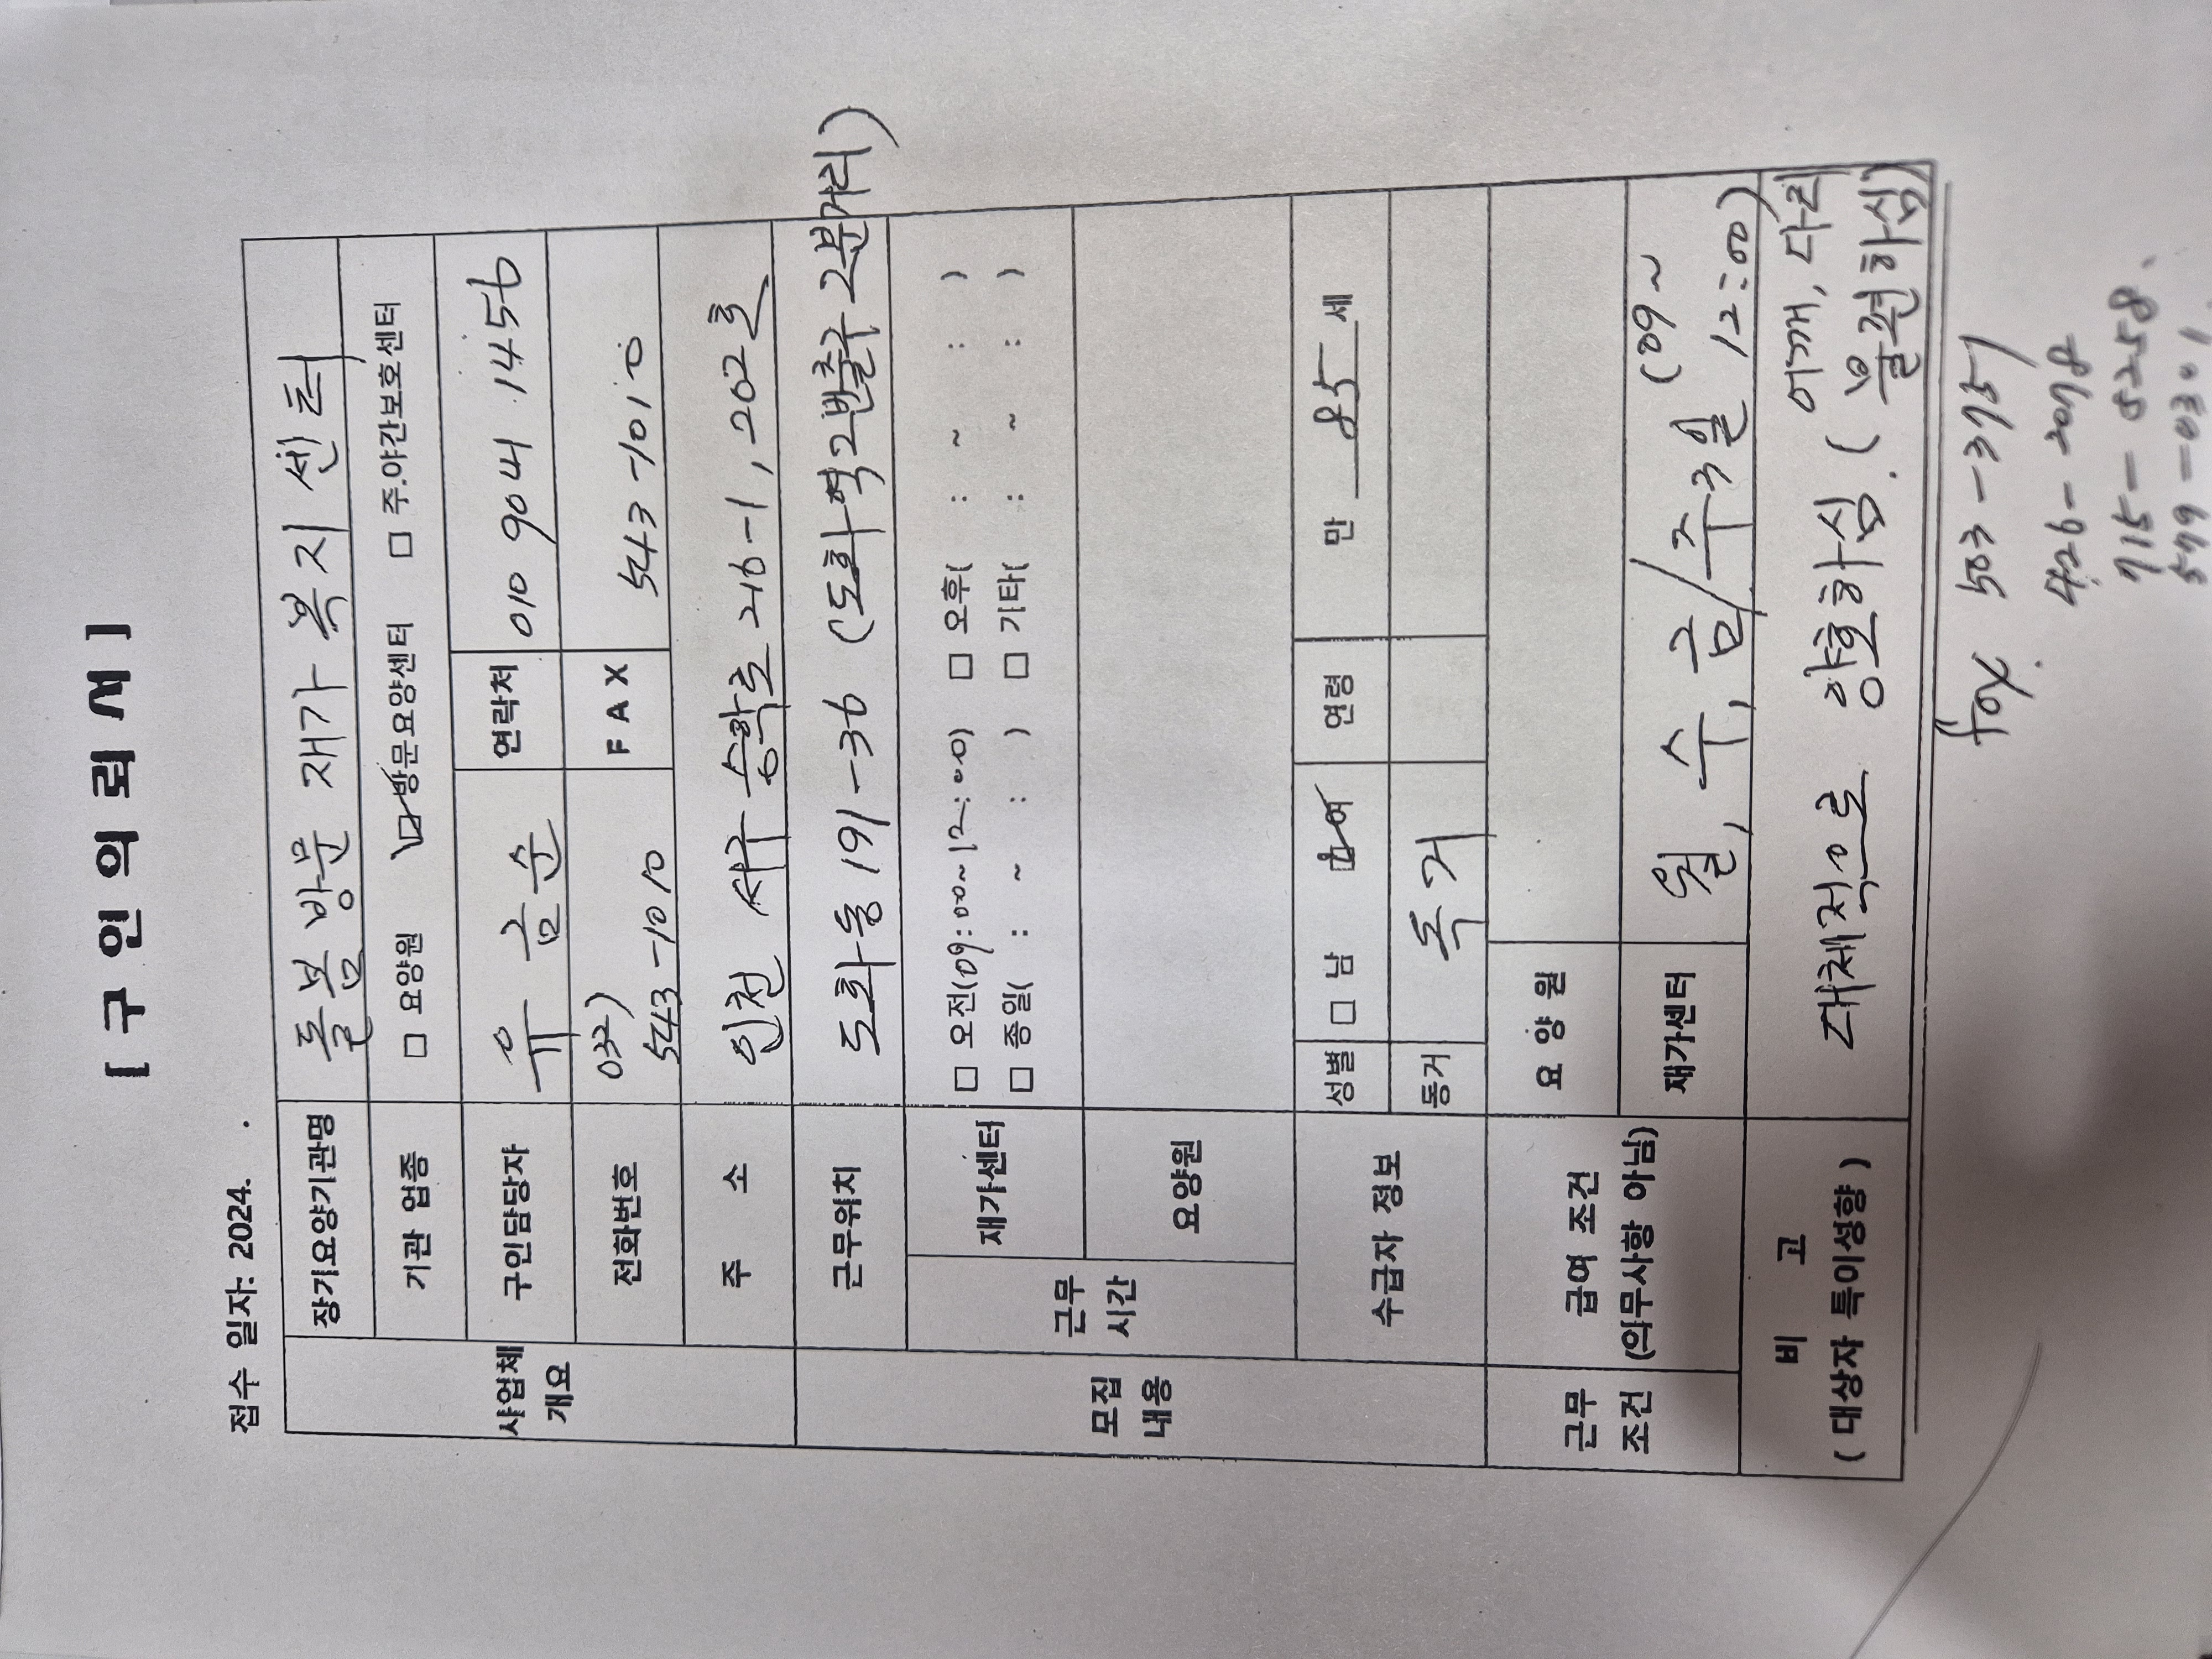 [ 구 인 의 뢰 서 ]
접수 일자: 2024. .
사업체 개요
장기요양기관명 돌봄 방문 재가 복지 센터
기관 업종 □ 요양원 ☑ 방문요양센터 □ 주.야간보호센터
구인담당자 유 금 순 연락처 010 9041 1456
전화번호 032) 543-1010 F A X 543-1010
주 소 인천 서구 승학로 216-1, 202호
모집 내용
근무위치 도화동 191-36 (도화역 2번출구 2분거리)
근무 시간
재가센터 □ 오전(09:00~12:00) □ 오후( : ~ : )
□ 종일( : ~ : ) □ 기타( : ~ : )
요양원
수급자 정보 성별 □ 남 ☑ 여 연령 만 85 세
동거 독거
근무 조건
급여 조건 (의무사항 아님)
요 양 원
재가센터 월, 수, 금/주3일 (09~
12:00)
비 고 ( 대상자 특이성향 )
대체적으로 양호하심. (어깨, 다리
불편하심)
fax 503-3751
426-2078
715-5258
579-0301